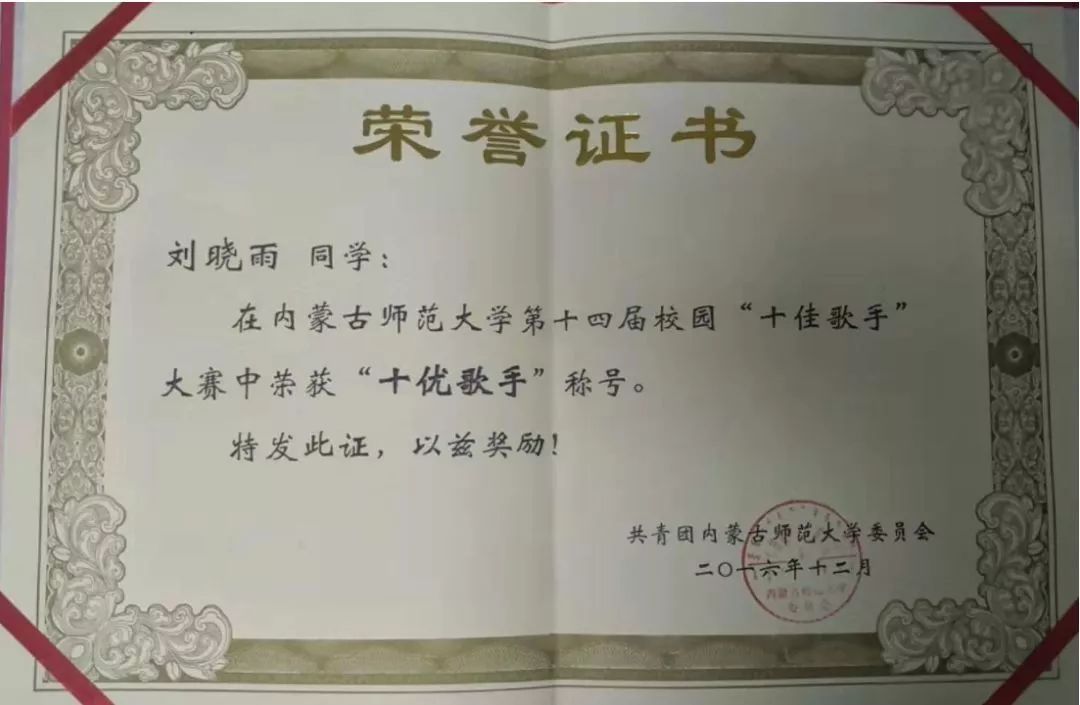 荣誉证书
刘晓雨 同学：
在内蒙古师范大学第十四届校园“十佳歌手”
大赛中荣获“十优歌手”称号。
特发此证，以兹奖励！
共青团内蒙古师范大学委员会
二〇一六年十二月